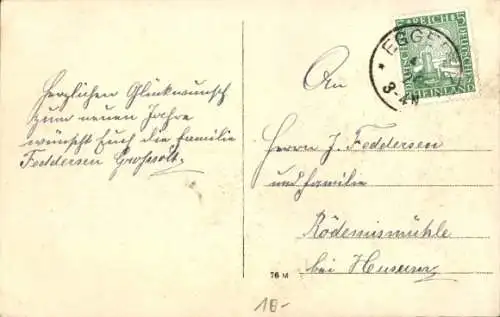 Herzlichen Glückwunsch
zum neuen Jahre
wünscht Euch die Familie
Feddersen Großsolt.
An
Herrn J. Feddersen
und Familie
Rödemismühle
bei Husum
76 M
18-
EGGEB
3-4N
REICH
5
RHEINLAND